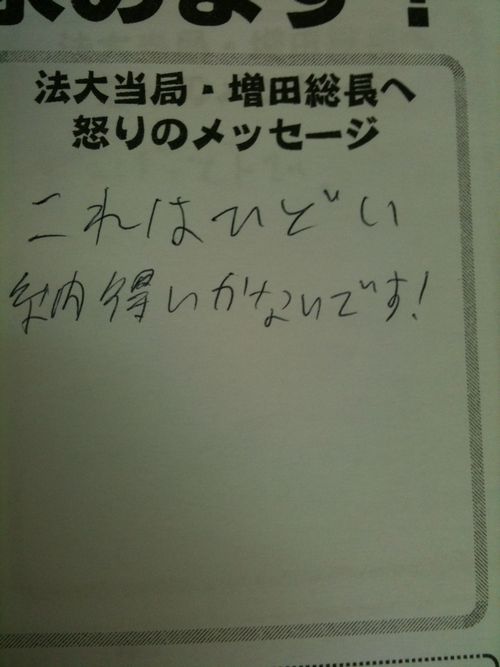 求めます！
法大当局・増田総長へ
怒りのメッセージ
これはひどい
納得いかないです!